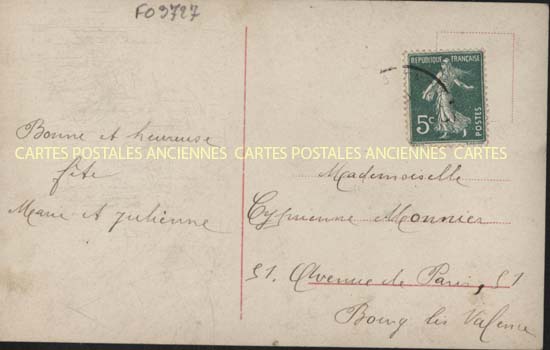 FO9727
REPUBLIQUE FRANÇAISE
5c
POSTES
Bonne et heureuse
fête
Marie et Julienne
CARTES POSTALES ANCIENNES CARTES POSTALES ANCIENNES CARTES
Mademoiselle
Cyprienne Monnier
51. Avenue de Paris, 51
Bourg lès Valence